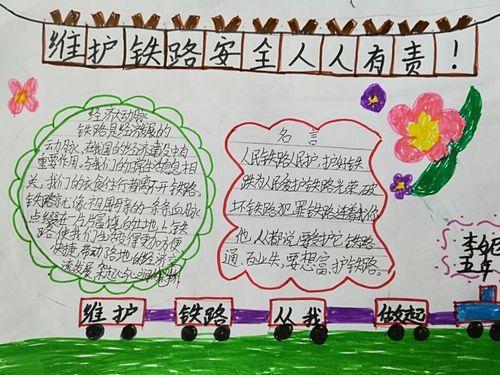 维护铁路安全人人有责！
经济大动脉
铁路是经济发展的
大动脉，在我国的经济建设中有
重要作用，与我们的日常生活息息相
关，我们的衣食住行都离不开铁路。
铁路就像祖国母亲的一条条血脉
点缀在一片片富饶的土地上，铁
路使我们生活得更加方便
快捷，带动了各地的经济
名言
人民铁路人民护，护好铁
铁路为人民爱护铁路光荣，破
坏铁路犯罪铁路连着你
他，人都说要护铁路
通，百业兴，要想富，护铁路。
李
五年
维护 铁路 从我 做起